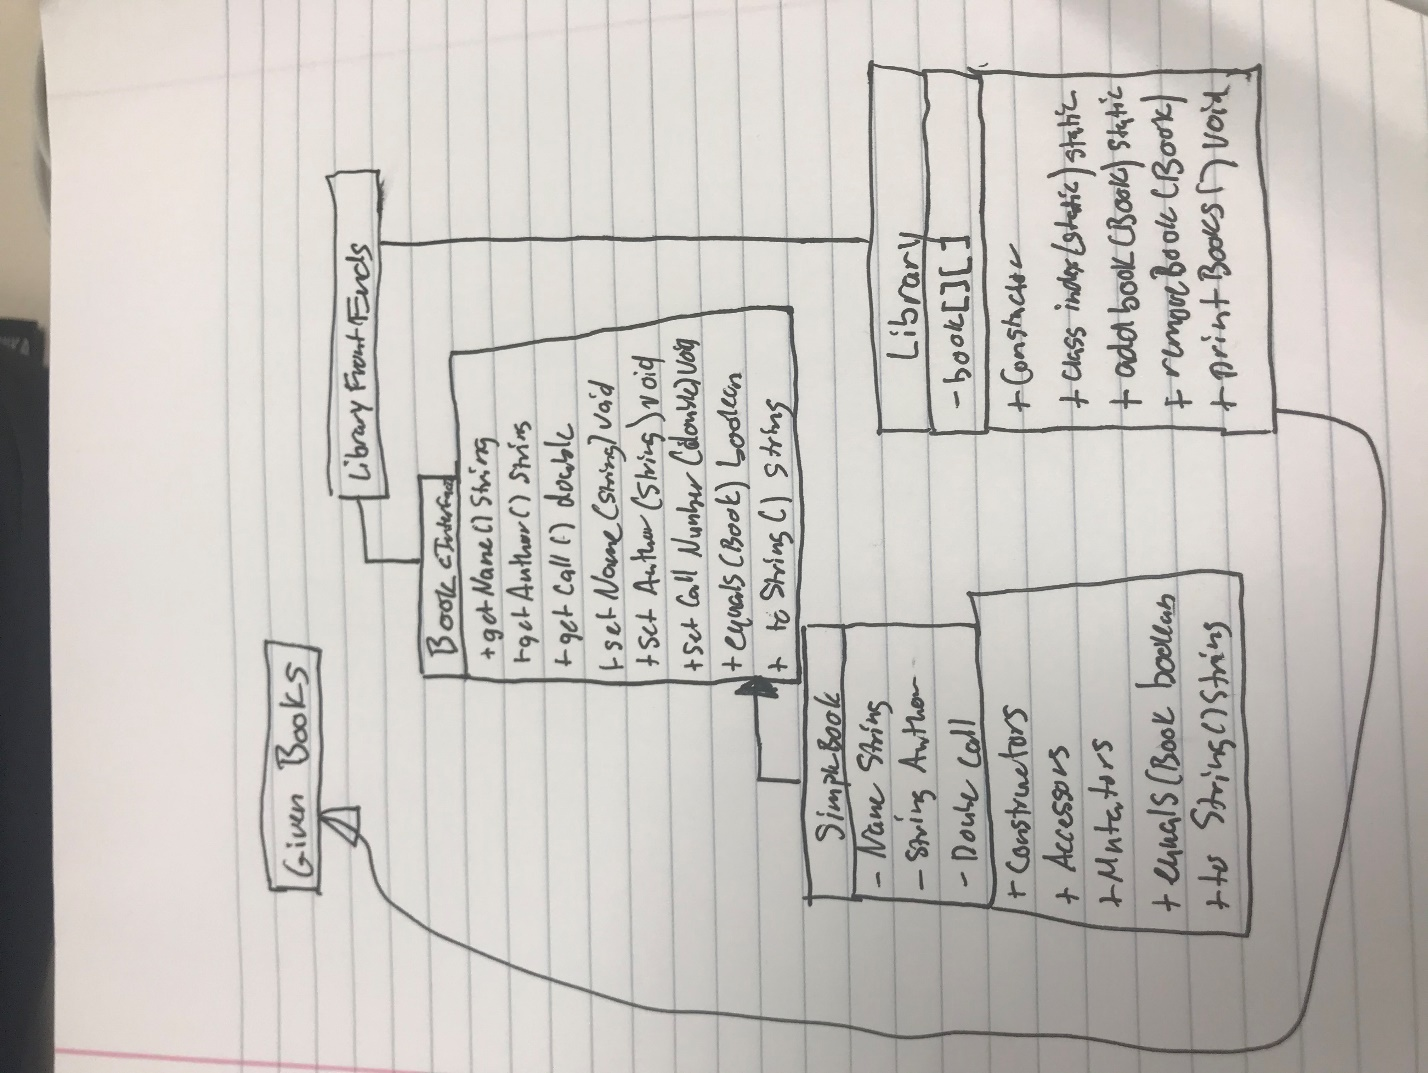 Given Books
Library Front Ends
Book <Interface
+ get Name () String
+ get Author () String
+ get Call () double
+ set Name (String) void
+ set Author (String) void
+ set Call Number (double) void
+ equals (Book) boolean
+ to String () String
Simple Book
- Name String
- String Author
- Double Call
+ Constructors
+ Accessors
+ Mutators
+ equals (Book boolean
+ to String () String
Library
- book [ ] [ ]
+ Constructor
+ class index (static) static
+ add book (Book) static
+ remove Book (Book)
+ print Books () void